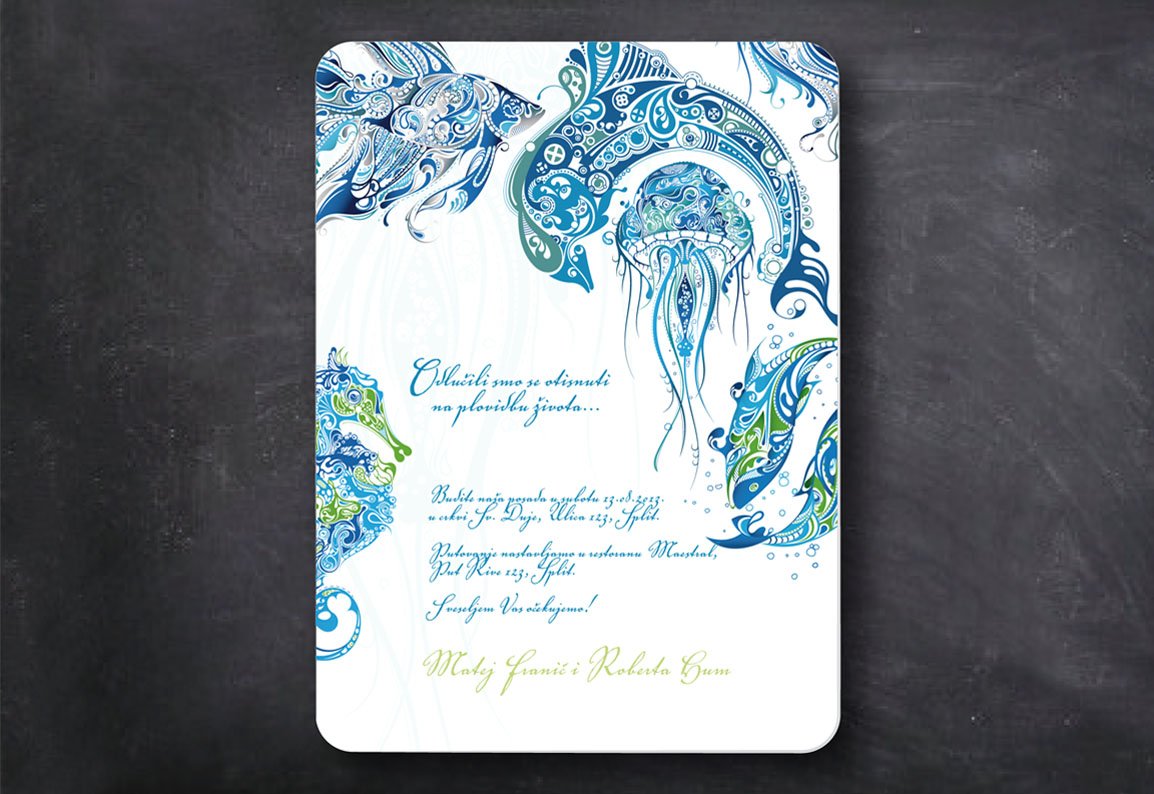 Odlučili smo se otisnuti
na plovidbu života...
Budite naša posada u subotu 13.08.2013.
u crkvi Sv. Duje, Ulica 123, Split.
Putovanje nastavljamo u restoranu Maestral,
Put Rive 123, Split.
S veseljem Vas očekujemo!
Matej Franić i Roberta Hum